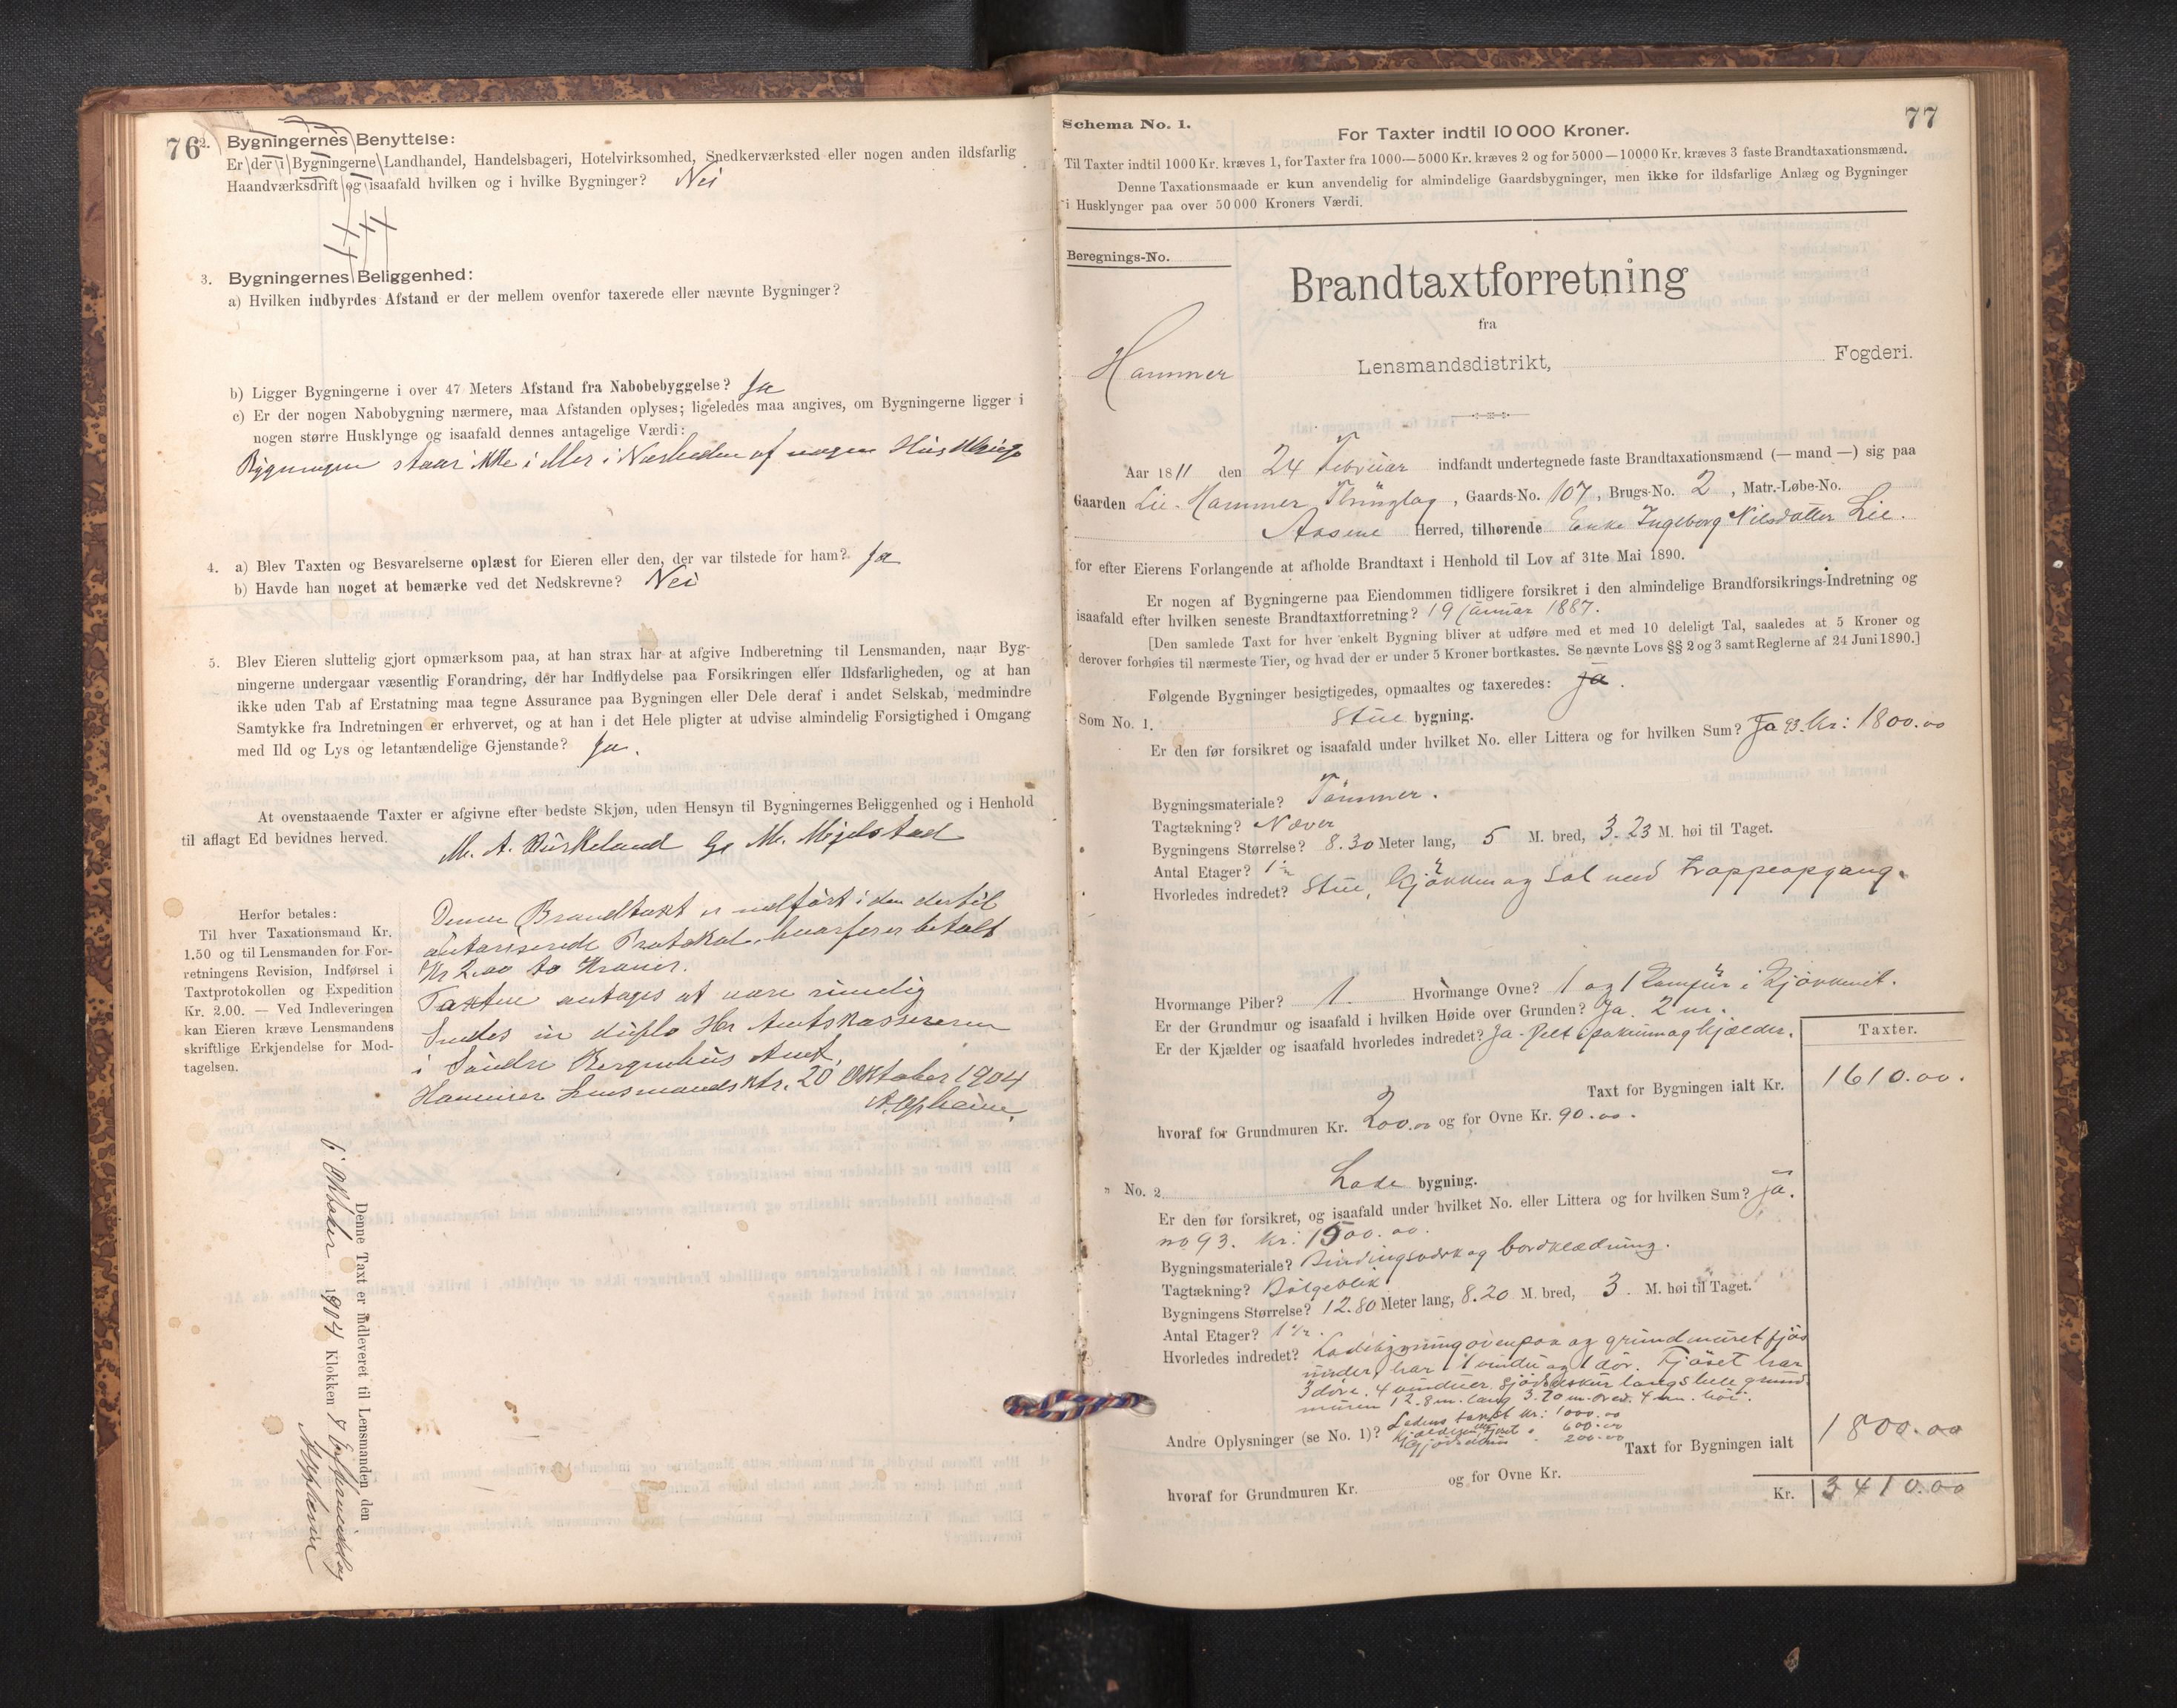 76
2. Bygningernes Benyttelse:
Er der i Bygningerne Landhandel, Handelsbageri, Hotelvirksomhed, Snedkerværksted eller nogen anden ildsfarlig
Haandværksdrift og isaafald hvilken og i hvilke Bygninger? Nei
3. Bygningernes Beliggenhed:
a) Hvilken indbyrdes Afstand er der mellem ovenfor taxerede eller nævnte Bygninger?
b) Ligger Bygningerne i over 47 Meters Afstand fra Nabobebyggelse? Ja
c) Er der nogen Nabobygning nærmere, maa Afstanden oplyses; ligeledes maa angives, om Bygningerne ligger i
nogen større Husklynge og isaafald dennes antagelige Værdi:
Bygningen staar ikke i eller i Nærheden af nogen Husklynge
4. a) Blev Taxten og Besvarelserne oplæst for Eieren eller den, der var tilstede for ham? Ja
b) Havde han noget at bemærke ved det Nedskrevne? Nei
5. Blev Eieren sluttelig gjort opmærksom paa, at han strax har at afgive Indberetning til Lensmanden, naar Byg-
ningerne undergaar væsentlig Forandring, der har Indflydelse paa Forsikringen eller Ildsfarligheden, og at han
ikke uden Tab af Erstatning maa tegne Assurance paa Bygningen eller Dele deraf i andet Selskab, medmindre
Samtykke fra Indretningen er erhvervet, og at han i det Hele pligter at udvise almindelig Forsigtighed i Omgang
med Ild og Lys og letantændelige Gjenstande? Ja.
At ovenstaaende Taxter er afgivne efter bedste Skjøn, uden Hensyn til Bygningernes Beliggenhed og i Henhold
til aflagt Ed bevidnes herved.
M. A. Burkeland M. Mjelstad
Herfor betales:
Til hver Taxationsmand Kr.
1.50 og til Lensmanden for For-
retningens Revision, Indførsel i
Taxtprotokollen og Expedition
Kr. 2.00. — Ved Indleveringen
kan Eieren kræve Lensmandens
skriftlige Erkjendelse for Mod-
tagelsen.
Denne Brandtakst er indført i den dertil
autoriserede Protokol, hvorfor er betalt
Kr 2.00 to Kroner.
Taxten antages at være rimelig
Sendes in duplo Hr Amtskassereren
i Søndre Bergenhus Amt,
Hammer Lensmandsktr. 20 Oktober 1904
Denne Taxt er indleveret til Lensmanden den
6 Oktober 1904 Klokken 7 Eftermiddag
77
Schema No. 1.
For Taxter indtil 10 000 Kroner.
Til Taxter indtil 1000 Kr. kræves 1, for Taxter fra 1000—5000 Kr. kræves 2 og for 5000—10000 Kr. kræves 3 faste Brandtaxationsmænd.
Denne Taxationsmaade er kun anvendelig for almindelige Gaardsbygninger, men ikke for ildsfarlige Anlæg og Bygninger
i Husklynger paa over 50 000 Kroners Værdi.
Beregnings-No.
Brandtaxtforretning
fra
Hammer Lensmandsdistrikt, Fogderi.
Aar 1811 den 24 Februar indfandt undertegnede faste Brandtaxationsmænd (— mand —) sig paa
Gaarden Lie. Hammer Thinglag, Gaards-No. 107, Brugs-No. 2, Matr.-Løbe-No.
Aasene Herred, tilhørende Enke Ingeborg Nilsdatter Lie.
for efter Eierens Forlangende at afholde Brandtaxt i Henhold til Lov af 31te Mai 1890.
Er nogen af Bygningerne paa Eiendommen tidligere forsikret i den almindelige Brandforsikrings-Indretning og
isaafald efter hvilken seneste Brandtaxtforretning? 19 Januar 1887.
[Den samlede Taxt for hver enkelt Bygning bliver at udføre med et med 10 deleligt Tal, saaledes at 5 Kroner og
derover forhøies til nærmeste Tier, og hvad der er under 5 Kroner bortkastes. Se nævnte Lovs §§ 2 og 3 samt Reglerne af 24 Juni 1890.]
Følgende Bygninger besigtigedes, opmaaltes og taxeredes: Ja.
Som No. 1. Stue bygning.
Er den før forsikret og isaafald under hvilket No. eller Littera og for hvilken Sum? Ja 93. Kr: 1800.00
Bygningsmateriale? Tømmer.
Tagtækning? Næver
Bygningens Størrelse? 8.30 Meter lang, 5 M. bred, 3.23 M. høi til Taget.
Antal Etager? 1½
Hvorledes indredet? Stue, Kjøkken og Sal med Trappeopgang.
Hvormange Piber? 1. Hvormange Ovne? 1 og 1 Komfur i Kjøkkenet.
Er der Grundmur og isaafald i hvilken Høide over Grunden? Ja. 2 m.
Er der Kjælder og isaafald hvorledes indredet? Ja - kjælder.
Taxter.
Taxt for Bygningen ialt Kr. 1610.00.
hvoraf for Grundmuren Kr. 200.00 og for Ovne Kr. 90.00.
" No. 2. Lade bygning.
Er den før forsikret, og isaafald under hvilket No. eller Littera og for hvilken Sum? Ja.
no 93. Kr: 1500.00.
Bygningsmateriale? Bindingsværk og bordklædning.
Tagtækning? Bølgeblik
Bygningens Størrelse? 12.80 Meter lang, 8.20 M. bred, 3. M. høi til Taget.
Antal Etager? 1 1/2.
Hvorledes indredet? Ladebygning ovenpaa og grundmuret fjøs
under, har 1 vindu og 1 dør. Fjøset har
3 døre. 4 vinduer. Gjødselskur langs hele grund
muren 12.8 m. lang 3.20 m. bred. 4 m. høi.
Andre Oplysninger (se No. 1)? Ladens takst Kr: 1000.00
600.00
200.00
Taxt for Bygningen ialt 1800.00
hvoraf for Grundmuren Kr. og for Ovne Kr.
Kr. 3410.00